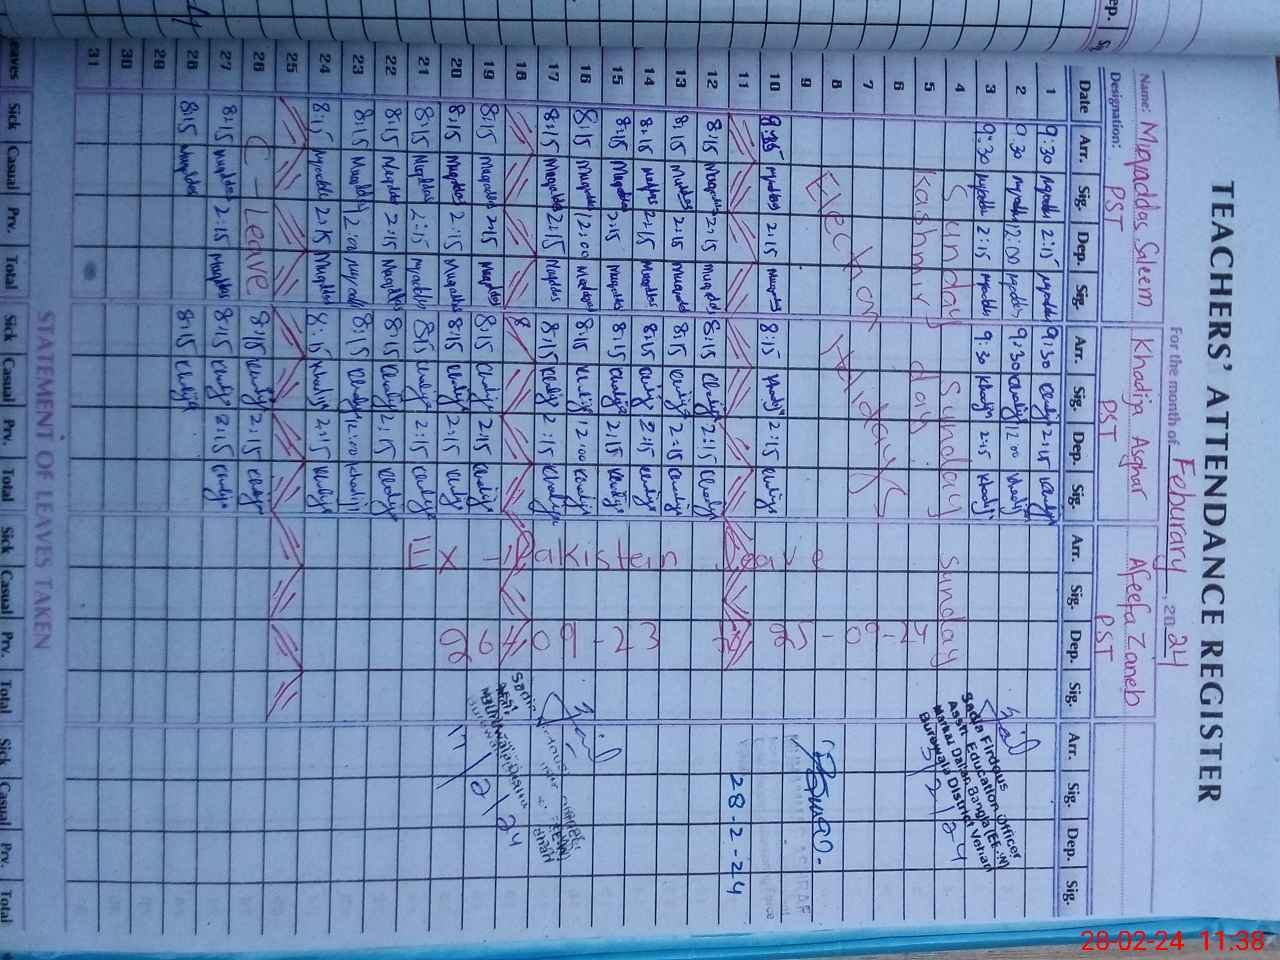 TEACHERS' ATTENDANCE REGISTER
For the month of Feburary, 2024
Name: Muqaddas Saleem Khadija Asghar Afeefa Zaneb
Designation: PST PST PST
Date Arr. Sig. Dep. Sig. Arr. Sig. Dep. Sig. Arr. Sig. Dep. Sig. Arr. Sig. Dep. Sig.
1 9:30 Muqaddas 2:15 Muqaddas 9:30 Khadija 2:15 Khadija
2 9:30 Muqaddas 12:00 Muqaddas 9:30 Khadija 12:00 Khadija
3 9:30 Muqaddas 2:15 Muqaddas 9:30 Khadija 2:15 Khadija
4 Sunday Sunday Sunday
5 Kashmir day
6
7 Election Holidays
8
9
10 Muqaddas 2:15 Muqaddas 8:15 Khadija 2:15 Khadija
11
12 8:15 Muqaddas 2:15 Muqaddas 8:15 Khadija 2:15 Khadija
13 8:15 Muqaddas 2:15 Muqaddas 8:15 Khadija 2:15 Khadija
14 8:15 Muqaddas 2:15 Muqaddas 8:15 Khadija 2:15 Khadija
15 8:15 Muqaddas 2:15 Muqaddas 8:15 Khadija 2:15 Khadija
16 8:15 Muqaddas 12:00 Muqaddas 8:15 Khadija 12:00 Khadija
17 8:15 Muqaddas 2:15 Muqaddas 8:15 Khadija 2:15 Khadija
18 8
19 8:15 Muqaddas 2:15 Muqaddas 8:15 Khadija 2:15 Khadija
20 8:15 Muqaddas 2:15 Muqaddas 8:15 Khadija 2:15 Khadija
21 8:15 Muqaddas 2:15 Muqaddas 8:15 Khadija 2:15 Khadija
22 8:15 Muqaddas 2:15 Muqaddas 8:15 Khadija 2:15 Khadija
23 8:15 Muqaddas 12:00 Muqaddas 8:15 Khadija 12:00 Khadija
24 8:15 Muqaddas 2:15 Muqaddas 8:15 Khadija 2:15 Khadija
25
26 C - Leave 8:15 Khadija 2:15 Khadija
27 8:15 Muqaddas 2:15 Muqaddas 8:15 Khadija 2:15 Khadija
28 8:15 Muqaddas 8:15 Khadija
29
30
31
Ex - Pakistan Leave
09-23 25-09-24
Sadia Firdous
Asstt. Education Officer
Markaz Dallan Bangla (EE.W)
Burewala District Vehari
5/2/24
17/2/24
28-2-24
STATEMENT OF LEAVES TAKEN
Leaves Sick Casual Prv. Total Sick Casual Prv. Total Sick Casual Prv. Total Sick Casual Prv. Total
28-02-24 11:38